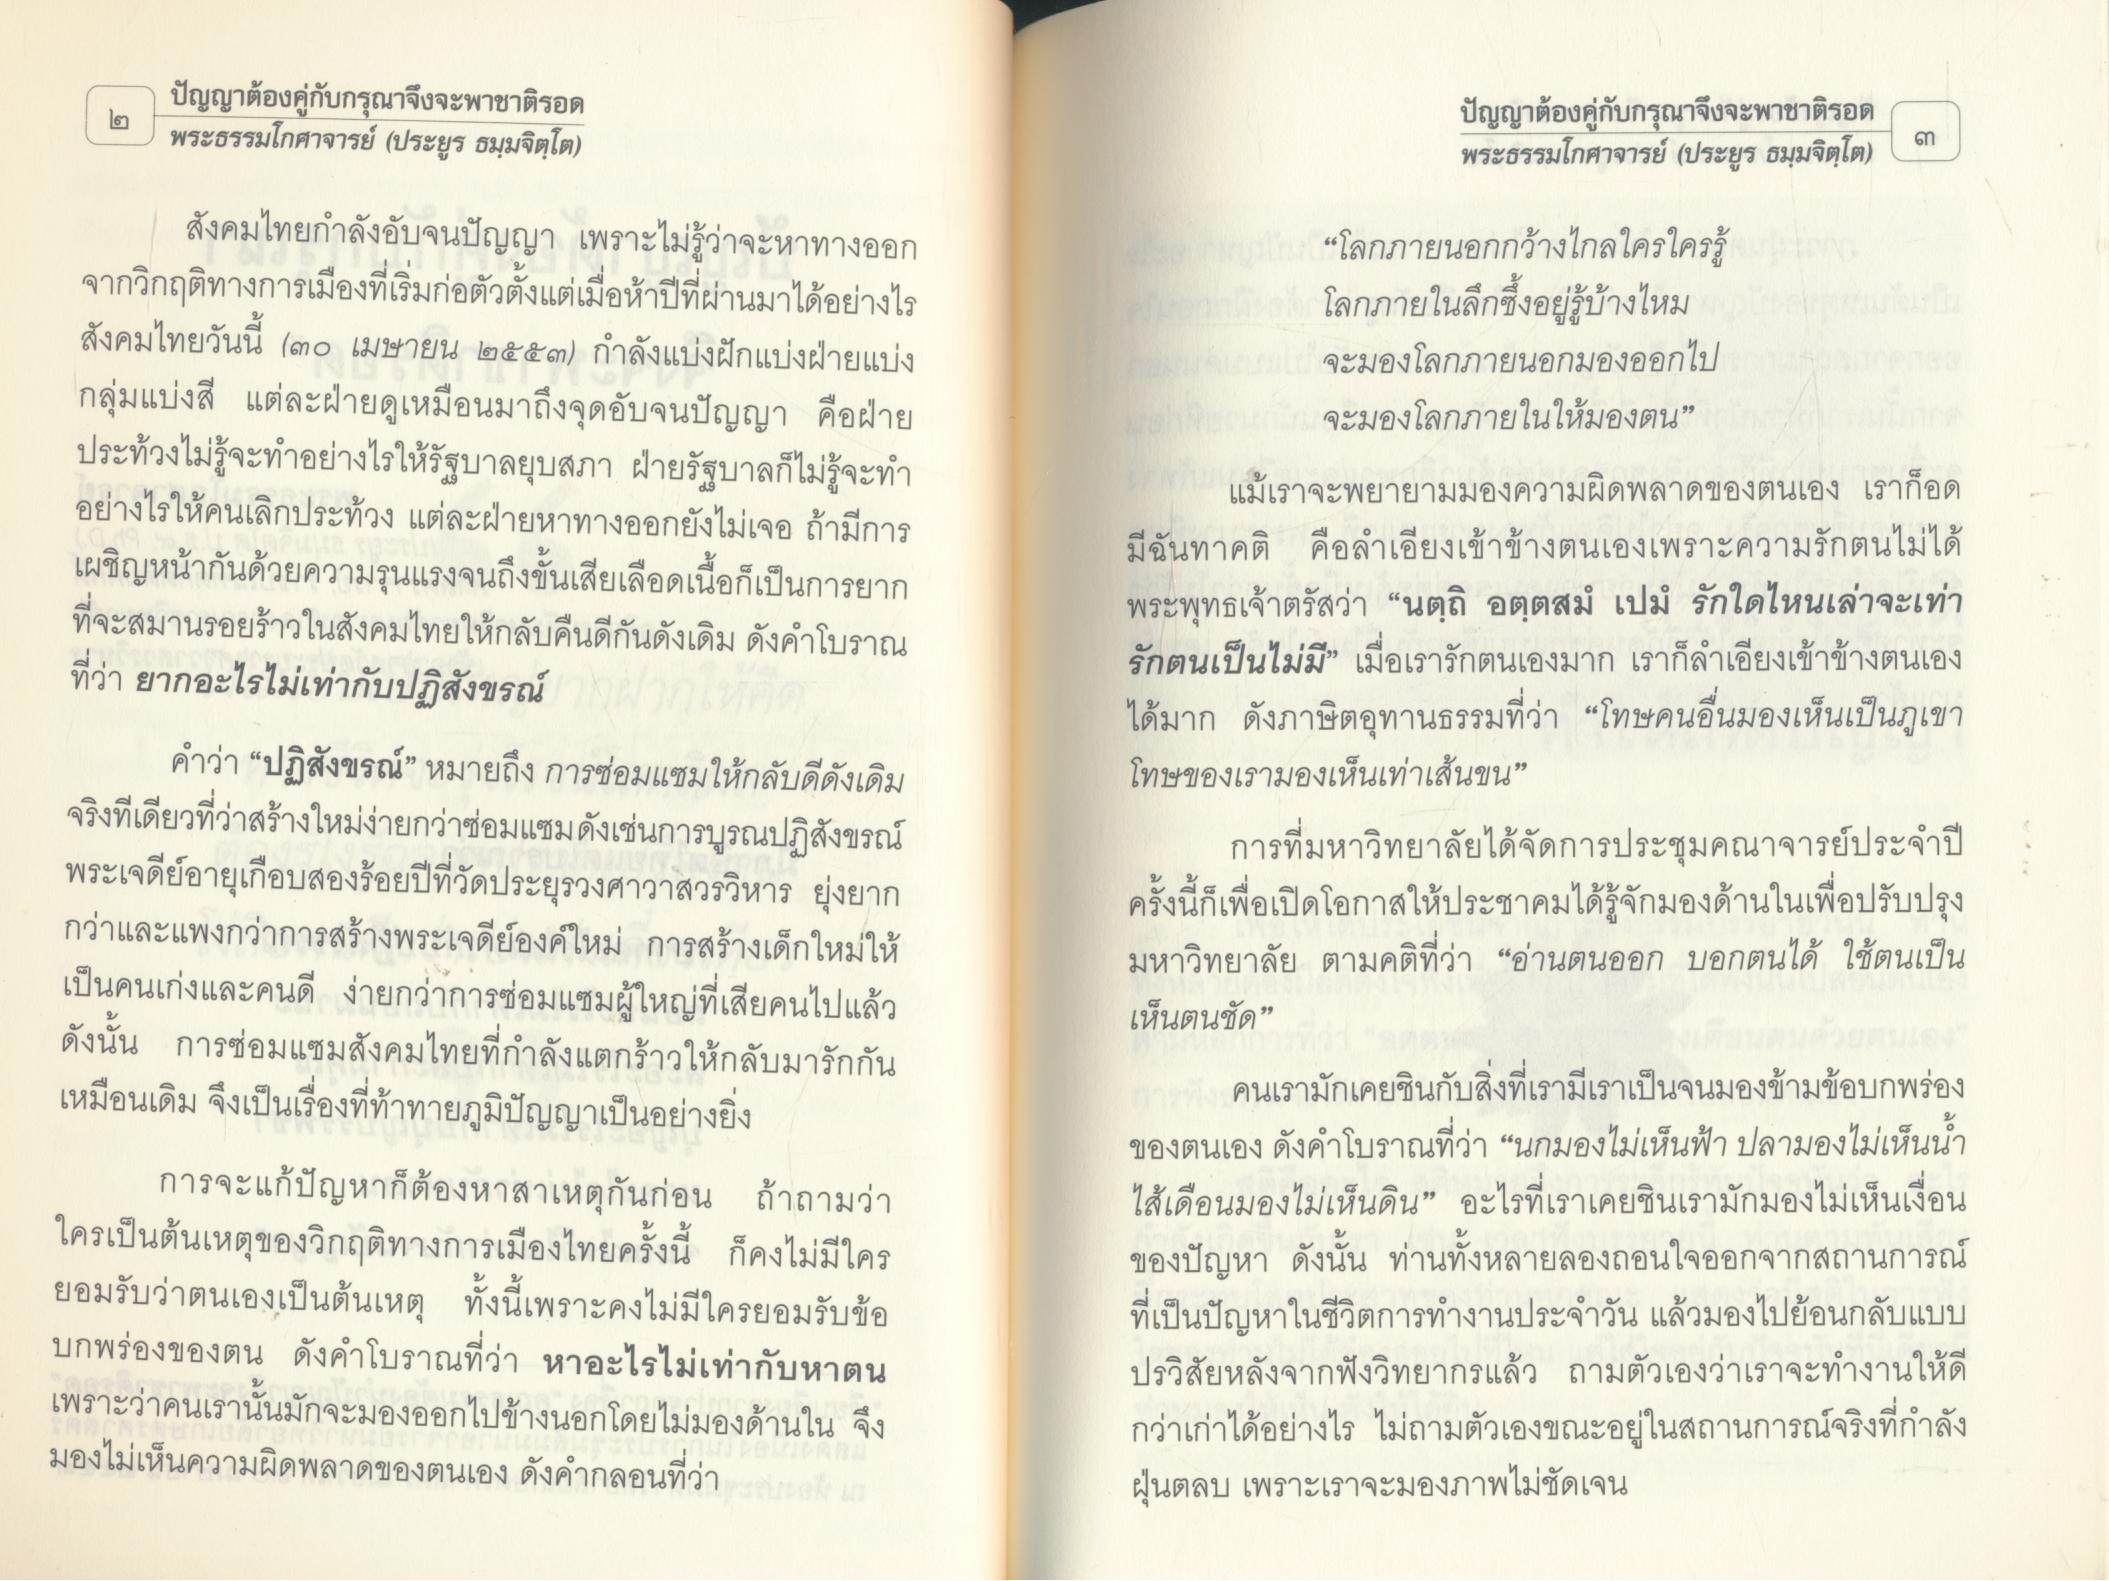 ๒
ปัญญาต้องคู่กับกรุณาจึงจะพาชาติรอด
พระธรรมโกศาจารย์ (ประยูร ธมฺมจิตฺโต)
สังคมไทยกำลังอับจนปัญญา เพราะไม่รู้ว่าจะหาทางออก
จากวิกฤติทางการเมืองที่เริ่มก่อตัวตั้งแต่เมื่อห้าปีที่ผ่านมาได้อย่างไร
สังคมไทยวันนี้ (๓๐ เมษายน ๒๕๕๓) กำลังแบ่งฝักแบ่งฝ่ายแบ่ง
กลุ่มแบ่งสี แต่ละฝ่ายดูเหมือนมาถึงจุดอับจนปัญญา คือฝ่าย
ประท้วงไม่รู้จะทำอย่างไรให้รัฐบาลยุบสภา ฝ่ายรัฐบาลก็ไม่รู้จะทำ
อย่างไรให้คนเลิกประท้วง แต่ละฝ่ายหาทางออกยังไม่เจอ ถ้ามีการ
เผชิญหน้ากันด้วยความรุนแรงจนถึงขั้นเสียเลือดเนื้อก็เป็นการยาก
ที่จะสมานรอยร้าวในสังคมไทยให้กลับคืนดีกันดังเดิม ดังคำโบราณ
ที่ว่า ยากอะไรไม่เท่ากับปฏิสังขรณ์
คำว่า “ปฏิสังขรณ์” หมายถึง การซ่อมแซมให้กลับดีดังเดิม
จริงทีเดียวที่ว่าสร้างใหม่ง่ายกว่าซ่อมแซมดังเช่นการบูรณปฏิสังขรณ์
พระเจดีย์อายุเกือบสองร้อยปีที่วัดประยุรวงศาวาสวรวิหาร ยุ่งยาก
กว่าและแพงกว่าการสร้างพระเจดีย์องค์ใหม่ การสร้างเด็กใหม่ให้
เป็นคนเก่งและคนดี ง่ายกว่าการซ่อมแซมผู้ใหญ่ที่เสียคนไปแล้ว
ดังนั้น การซ่อมแซมสังคมไทยที่กำลังแตกร้าวให้กลับมารักกัน
เหมือนเดิม จึงเป็นเรื่องที่ท้าทายภูมิปัญญาเป็นอย่างยิ่ง
การจะแก้ปัญหาก็ต้องหาสาเหตุกันก่อน ถ้าถามว่า
ใครเป็นต้นเหตุของวิกฤติทางการเมืองไทยครั้งนี้ ก็คงไม่มีใคร
ยอมรับว่าตนเองเป็นต้นเหตุ ทั้งนี้เพราะคงไม่มีใครยอมรับข้อ
บกพร่องของตน ดังคำโบราณที่ว่า หาอะไรไม่เท่ากับหาตน
เพราะว่าคนเรานั้นมักจะมองออกไปข้างนอกโดยไม่มองด้านใน จึง
มองไม่เห็นความผิดพลาดของตนเอง ดังคำกลอนที่ว่า
ปัญญาต้องคู่กับกรุณาจึงจะพาชาติรอด
พระธรรมโกศาจารย์ (ประยูร ธมฺมจิตฺโต)
๓
“โลกภายนอกกว้างไกลใครใครรู้
โลกภายในลึกซึ้งอยู่รู้บ้างไหม
จะมองโลกภายนอกมองออกไป
จะมองโลกภายในให้มองตน”
แม้เราจะพยายามมองความผิดพลาดของตนเอง เราก็อด
มีฉันทาคติ คือลำเอียงเข้าข้างตนเองเพราะความรักตนไม่ได้
พระพุทธเจ้าตรัสว่า “นตฺถิ อตฺตสมํ เปมํ รักใดไหนเล่าจะเท่า
รักตนเป็นไม่มี” เมื่อเรารักตนเองมาก เราก็ลำเอียงเข้าข้างตนเอง
ได้มาก ดังภาษิตอุทานธรรมที่ว่า “โทษคนอื่นมองเห็นเป็นภูเขา
โทษของเรามองเห็นเท่าเส้นขน”
การที่มหาวิทยาลัยได้จัดการประชุมคณาจารย์ประจำปี
ครั้งนี้ก็เพื่อเปิดโอกาสให้ประชาคมได้รู้จักมองด้านในเพื่อปรับปรุง
มหาวิทยาลัย ตามคติที่ว่า “อ่านตนออก บอกตนได้ ใช้ตนเป็น
เห็นตนชัด”
คนเรามักเคยชินกับสิ่งที่เรามีเราเป็นจนมองข้ามข้อบกพร่อง
ของตนเอง ดังคำโบราณที่ว่า “นกมองไม่เห็นฟ้า ปลามองไม่เห็นน้ำ
ไส้เดือนมองไม่เห็นดิน” อะไรที่เราเคยชินเรามักมองไม่เห็นเงื่อน
ของปัญหา ดังนั้น ท่านทั้งหลายลองถอนใจออกจากสถานการณ์
ที่เป็นปัญหาในชีวิตการทำงานประจำวัน แล้วมองไปย้อนกลับแบบ
ปรวิสัยหลังจากฟังวิทยากรแล้ว ถามตัวเองว่าเราจะทำงานให้ดี
กว่าเก่าได้อย่างไร ไม่ถามตัวเองขณะอยู่ในสถานการณ์จริงที่กำลัง
ฝุ่นตลบ เพราะเราจะมองภาพไม่ชัดเจน